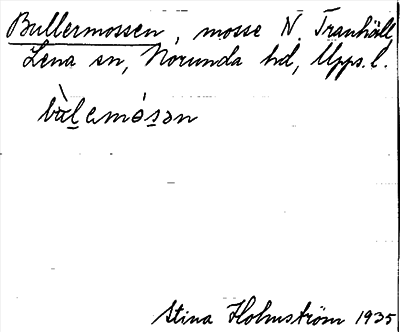 Bullermossen, mosse N. Tranhäll,
Lena sn, Norunda hd, Upps. l.
bùl̲emós̲ən
Stina Holmström 1935